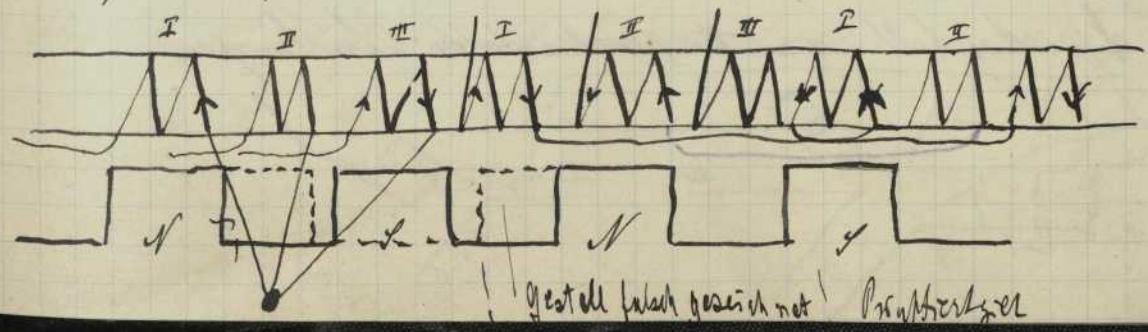 I II III I II III I II
N S N S
gestell falsch gezeichnet